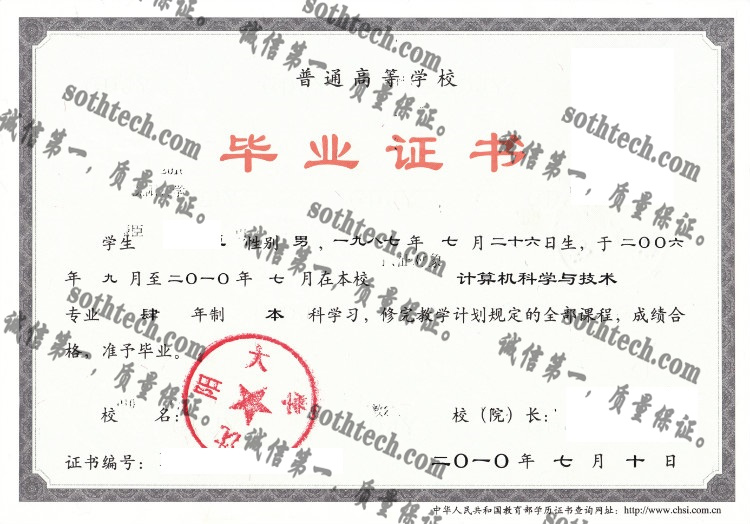 普通高等学校
毕业证书
学生 性别 男 ，一九八七年 七 月二十六日生，于二〇〇六
年 九 月至二〇一〇年 七 月在本校 计算机科学与技术
专业 肆 年制 本 科学习，修完教学计划规定的全部课程，成绩合
格，准予毕业。
校 名： 校（院）长：
证书编号： 二〇一〇年七月十日
中华人民共和国教育部学历证书查询网址：http://www.chsi.com.cn
沈阳 大
sothtech.com
诚信第一，质量保证。
sothtech.com
诚信第一，质量保证。
sothtech.com
诚信第一，质量保证。
sothtech.com
诚信第一，质量保证。
sothtech.com
诚信第一，质量保证。
sothtech.com
诚信第一，质量保证。
sothtech.com
诚信第一，质量保证。
sothtech.com
诚信第一，质量保证。